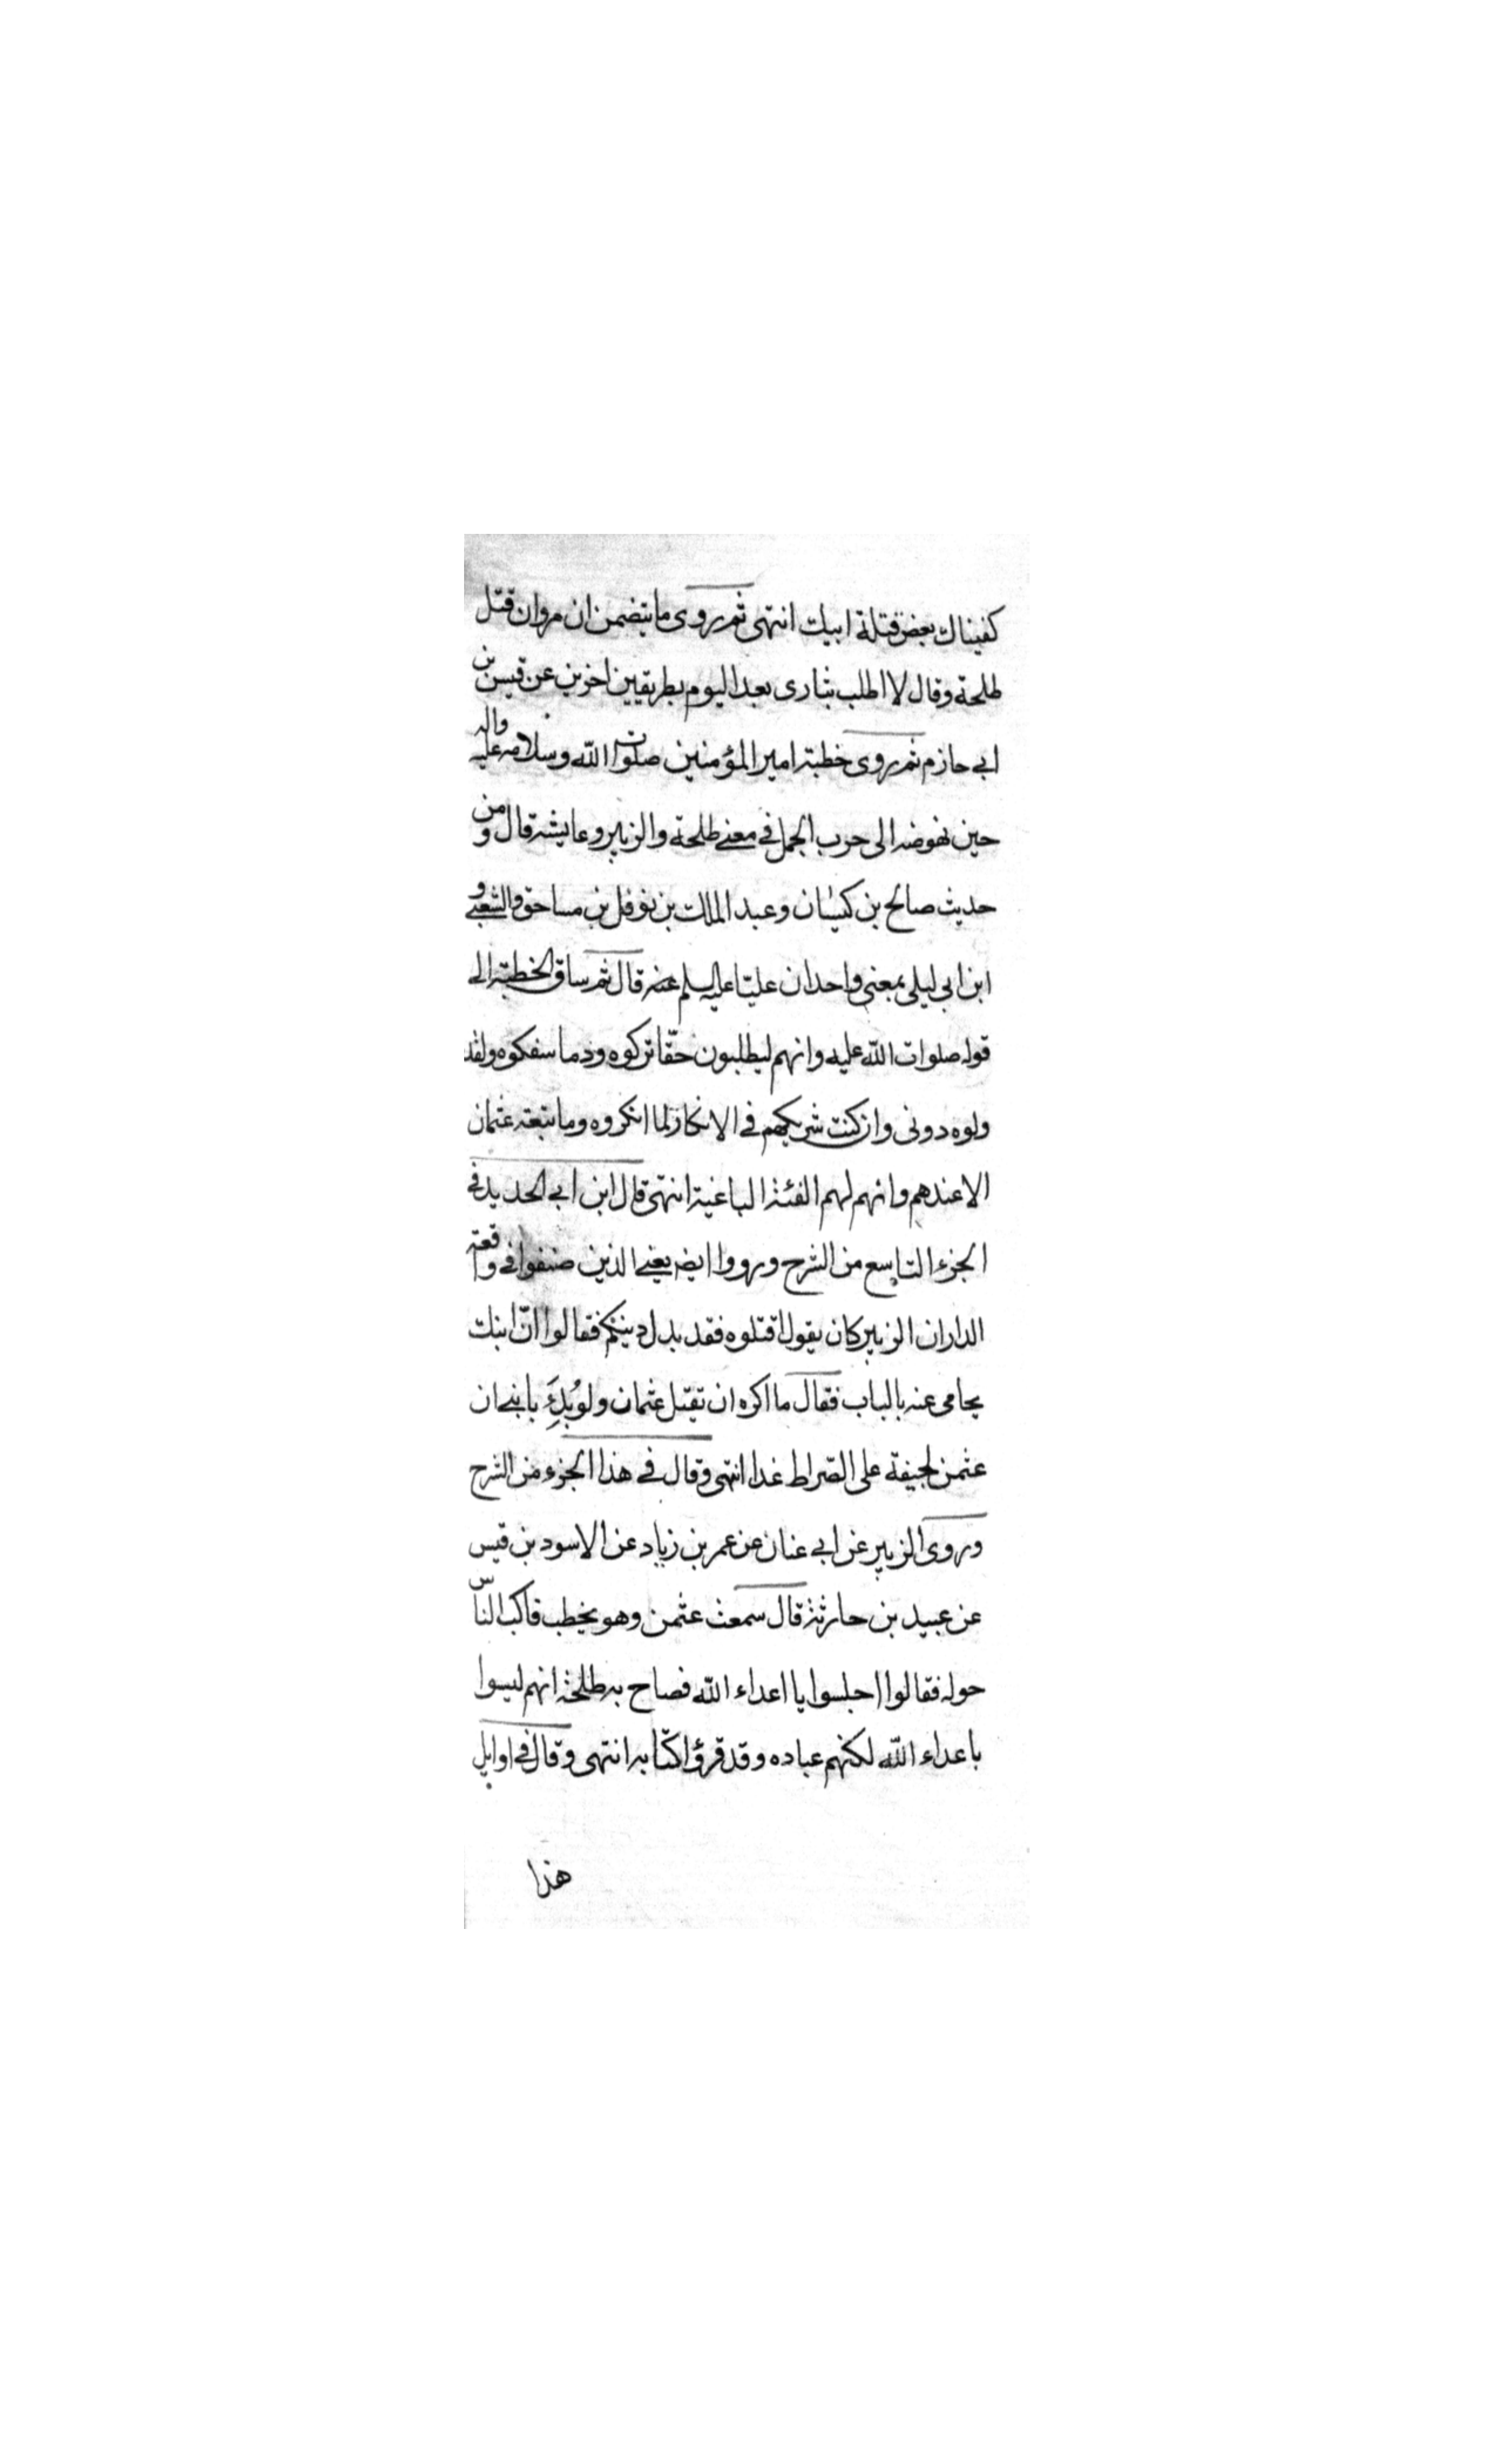 كفيناك بعض قتلة ابيك انتهى ثم روى ما يتضمن ان مروان قتل
طلحة وقال لا اطلب بثارى بعد اليوم بطريقين اخرين عن قيس بن
ابي حازم ثم روى خطبة امير المؤمنين صلوات الله وسلامه عليه واله
حين نهوضه الى حرب الجمل في معنى طلحة والزبير وعايشة قال ومن
حديث صالح بن كيسان وعبد الملك بن نوفل بن مساحق والشعبي و
ابن ابي ليلى بمعنى واحد ان عليا عليه السلم عنه قال ثم ساق الخطبة الى
قوله صلوات الله عليه وانهم ليطلبون حقّا تركوه ودما سفكوه ولقد
ولوه دونى وان كنت شريكهم في الانكار لما انكروه وما تبعة عثمان
الا عندهم وانهم لهم الفئة الباغية انتهى قال ابن ابي الحديد في
الجزء التاسع من الشرح ورووا ايضا يعني الذين صنفوا في واقعة
الدار ان الزبير كان يقول اقتلوه فقد بدل دينكم فقالوا انّ ابنك
يحامى عنه بالباب فقال ما اكره ان تقتل عثمان ولو بُدِئَ بابني ان
عثمن لجيفة على الصّراط غدا انتهى وقال في هذا الجزء من الشرح
وروى الزبير عن ابي عنان عن عمر بن زياد عن الاسود بن قيس
عن عبيد بن حارثة قال سمعت عثمن وهو يخطب فاكب الناسّ
حوله فقالوا اجلسوا يا اعداء الله فصاح به طلحة انهم ليسوا
باعداء الله لكنهم عباده وقد قرؤا كتابه انتهى وقال في اوايل
هذا